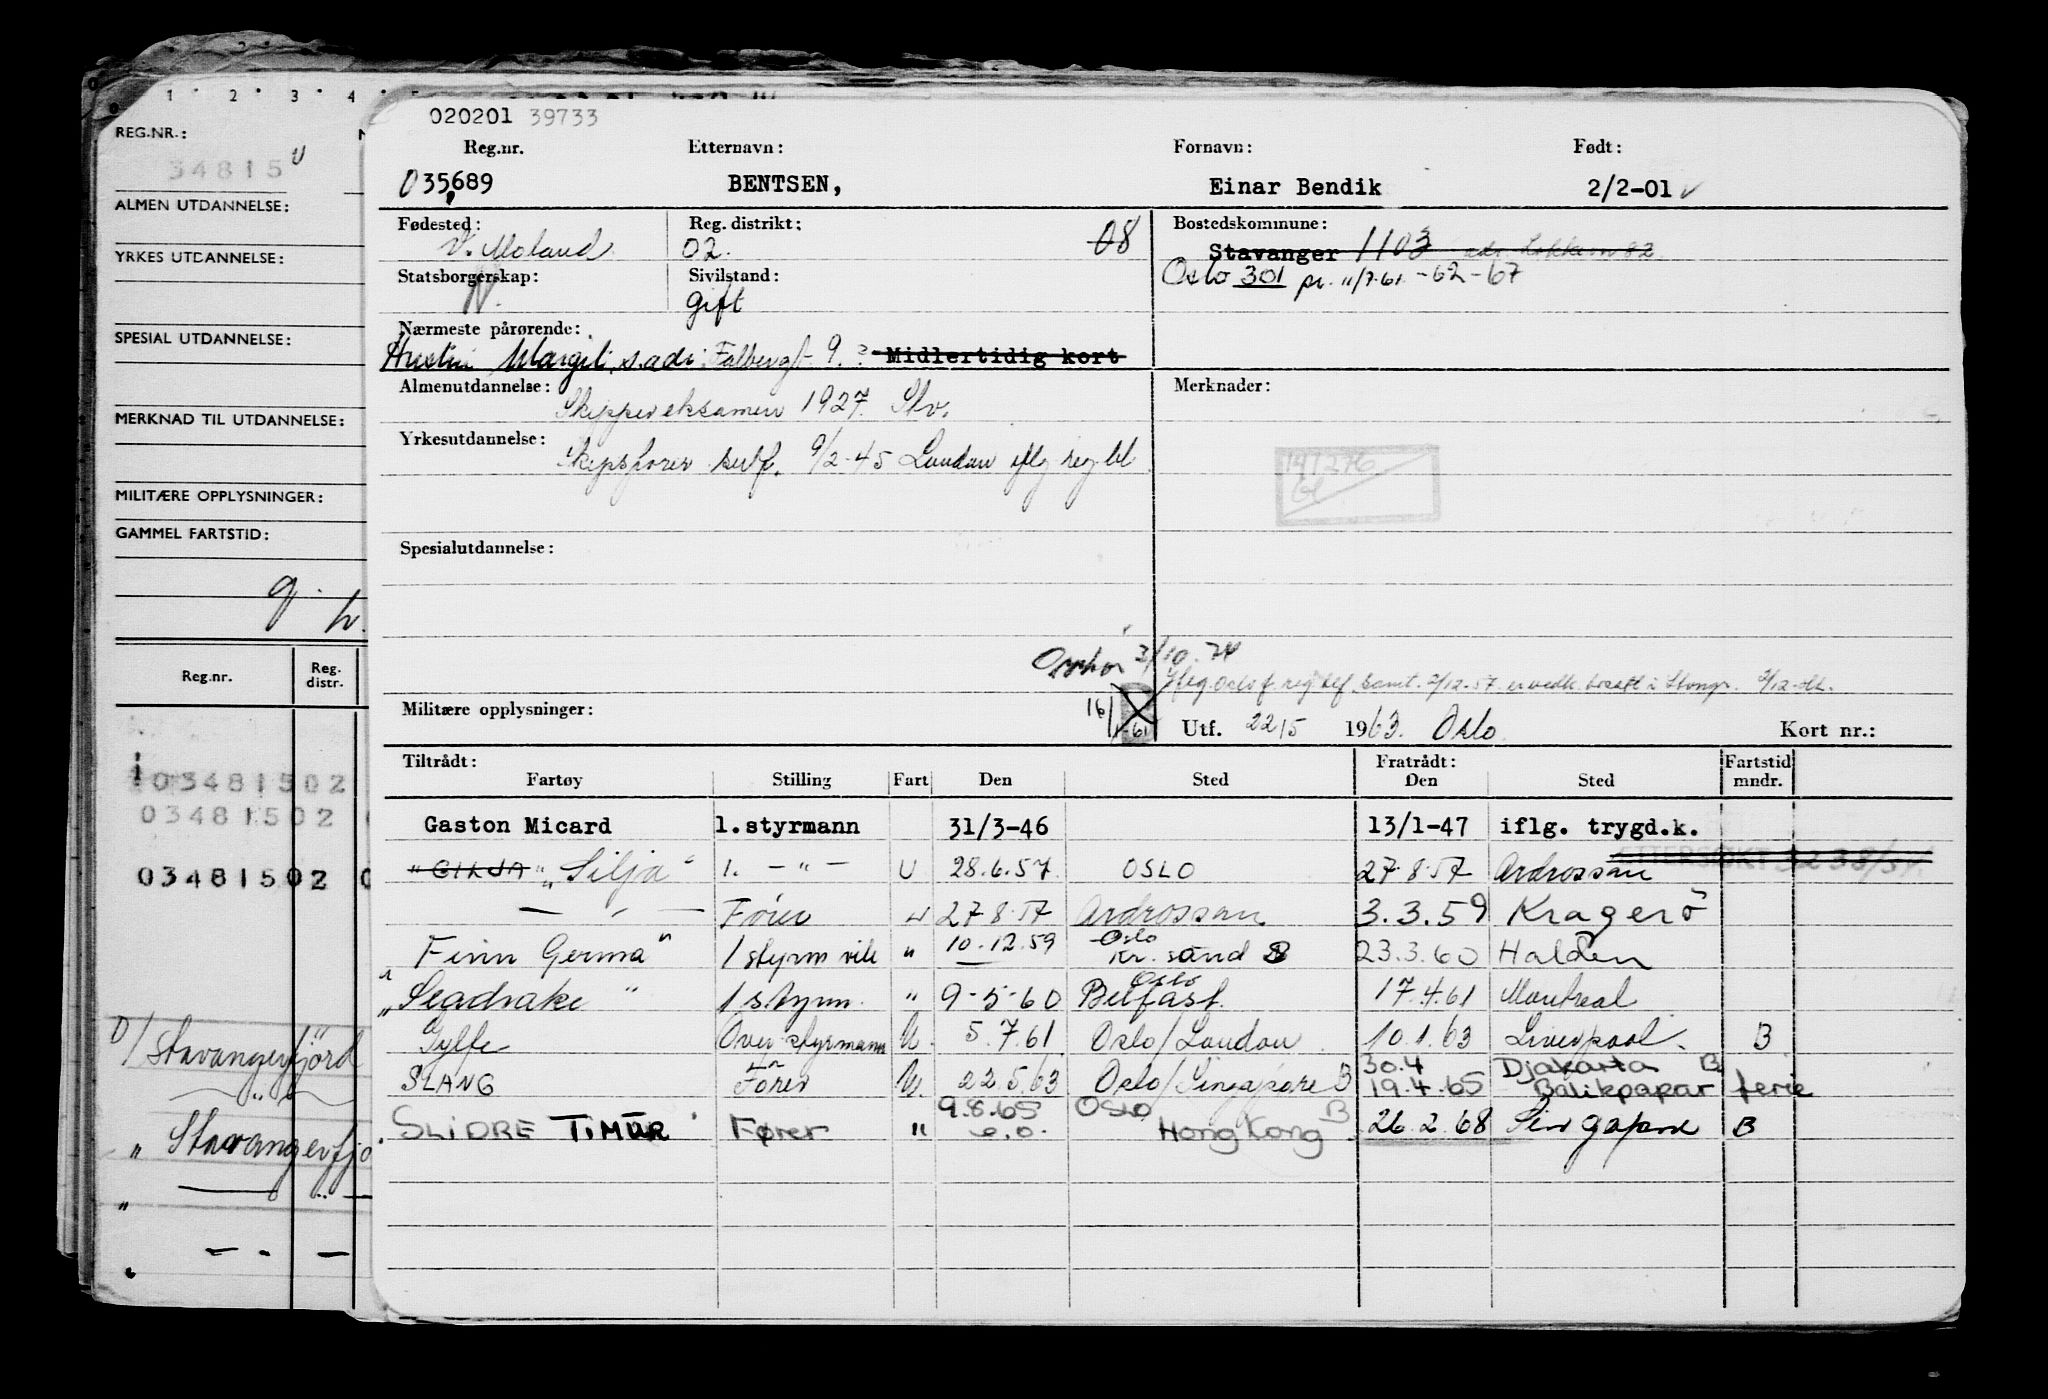 1 2 3 4
REG.NR.:
34815
ALMEN UTDANNELSE:
YRKES UTDANNELSE:
SPESIAL UTDANNELSE:
MERKNAD TIL UTDANNELSE:
MILITÆRE OPPLYSNINGER:
GAMMEL FARTSTID:
Reg.nr. Reg. distr.
03481502
03481502
03481502
D/ Stavangerfjörd
" Stavangerfjo
020201 39733
Reg.nr. Etternavn: Fornavn: Født:
035,689 BENTSEN, Einar Bendik 2/2-01
Fødested: Reg. distrikt: Bostedskommune:
V. Moland 02. 08 Stavanger 1103
Statsborgerskap: Sivilstand: Oslo 301 pr. 11/7-61 -62-67
N. gift
Nærmeste pårørende:
Hustru Margit, s.adr. 9. Midlertidig kort
Almenutdannelse: Merknader:
Skippereksamen 1927. Stv.
Yrkesutdannelse:
Skipsfører sertf. 9/2-45 London iflg reg.bl
147276
Spesialutdannelse:
3/10.74
iflg. Oslo
Militære opplysninger: 16/1-61 Utf. 22/5 1963. Oslo. Kort nr.:
Tiltrådt: Fratrådt: Fartstid
Fartøy Stilling Fart Den Sted Den Sted mndr.
Gaston Micard 1.styrmann 31/3-46 13/1-47 iflg. trygd.k.
"GILJA" "Silja" 1. — " — U 28.6.57. OSLO 27.8.57 Ardrossan ETTERSØKT
— " — Fører " 27.8.57 Ardrossan 3.3.59 Kragerö
Finn Germa" 1 styrm vik " 10.12.59 Oslo Kr. sand S 23.3.60 Halden
"Seadrake" 1 styrm. " 9-5-60 Oslo Belfast. 17.4.61 Montreal
Gylfe Overstyrmann U. 5.7.61 Oslo/London 10.1.63 Liverpool. B
30.4 Djakarta B
SLANG Fører U. 22.5.63 Oslo/Singapore B 19.4.65 Balikpapar ferie
9.8.65 OSLO
SLIDRE TIMUR Fører " e.o. Hong Kong B 26.2.68 Singapore B